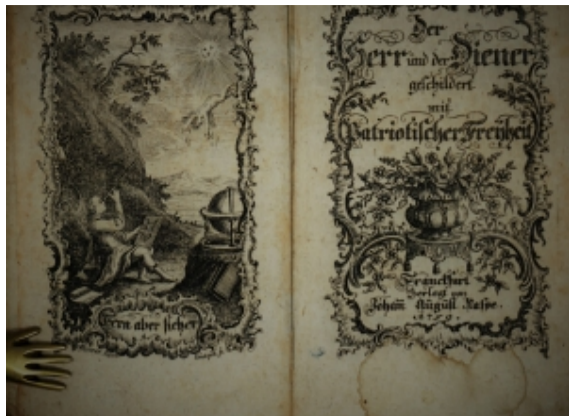 Fern aber sicher
Der
Herr und der Diener
geschildert
mit
Patriotischer Freyheit
Franckfurt
verlegt von
Johan̄ August Raspe.
1759.